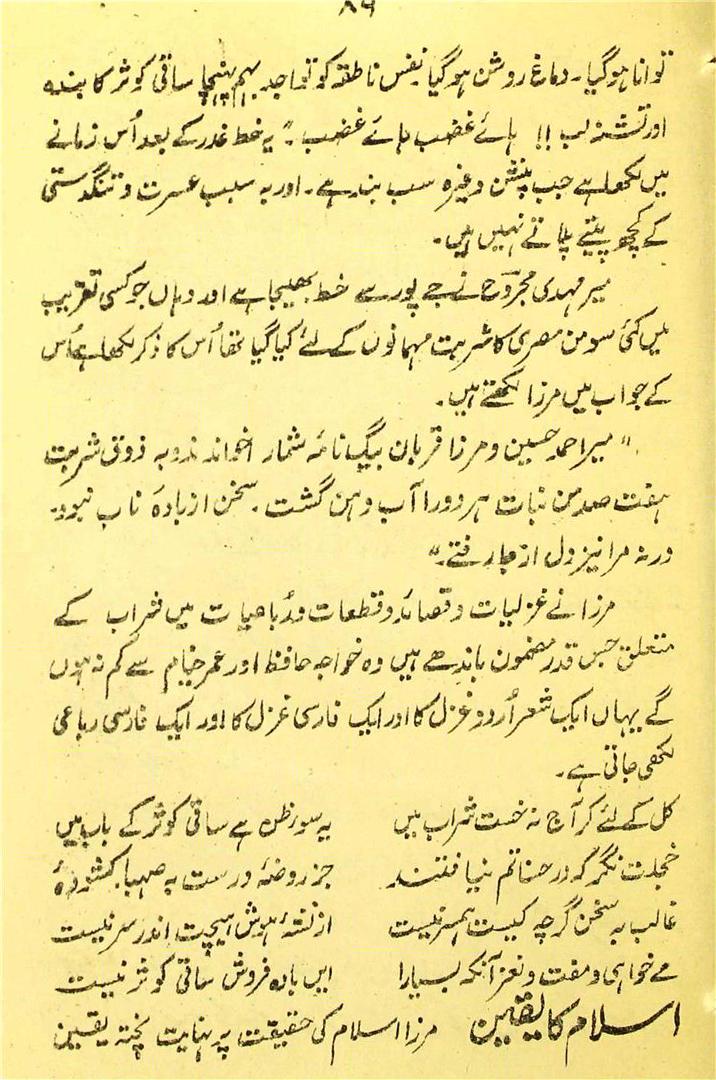 ۸۶
توانا ہوگیا۔ دماغ روشن ہوگیا۔ نفس ناطقہ کو تواجد بہم پہنچا ساقی کوثر کا بندہ
اور تشنہ لب!! ہائے غضب ہائے غضب۔" یہ خط غدر کے بعد اُس زمانے
میں لکھا ہے جب پنشن وغیرہ سب بند ہے۔ اور بہ سبب عسرت و تنگدستی
کے کچھ پیتے پلاتے نہیں ہیں۔
میر مہدی مجروح نے جے پور سے خط بھیجا ہے اور وہاں جو کسی تقریب
میں کئی سو من مصری کا شربت مہمانوں کے لئے کیا گیا تھا اُس کا ذکر لکھا ہے اُس
کے جواب میں مرزا لکھتے ہیں۔
"میر احمد حسین و مرزا قربان بیگ نامۂ شمار اخواندند و بہ ذوق شربت
ہفت صد من نبات ہر دو را آب دہن گشت۔ سخن از بادۂ ناب نبود۔
ورنہ مرا نیز دل از جا رفتے۔"
مرزا نے غزلیات و قصائد و قطعات و رباعیات میں شراب کے
متعلق جس قدر مضمون باندھے ہیں وہ خواجہ حافظ اور عمر خیام سے کم نہ ہوں
گے یہاں ایک شعر اُردو غزل کا اور ایک فارسی غزل کا اور ایک فارسی رباعی
لکھی جاتی ہے۔
کل کے لئے کر آج نہ خست شراب میں یہ سوء ظن ہے ساقی کوثر کے باب میں
خجلت نگر کہ در حسناتم نیافتند جز روضۂ درست بہ صہبا کشودۂ
غالب بہ سخن گرچہ کیست ہمسر نیست از نشۂ ہوش ہیچت اندر سر نیست
مے خواہی و مفت و نغز آنکہ بسیار ایں بادہ فروش ساقی کوثر نیست
اسلام کا یقین مرزا اسلام کی حقیقت پر نہایت پختہ یقین